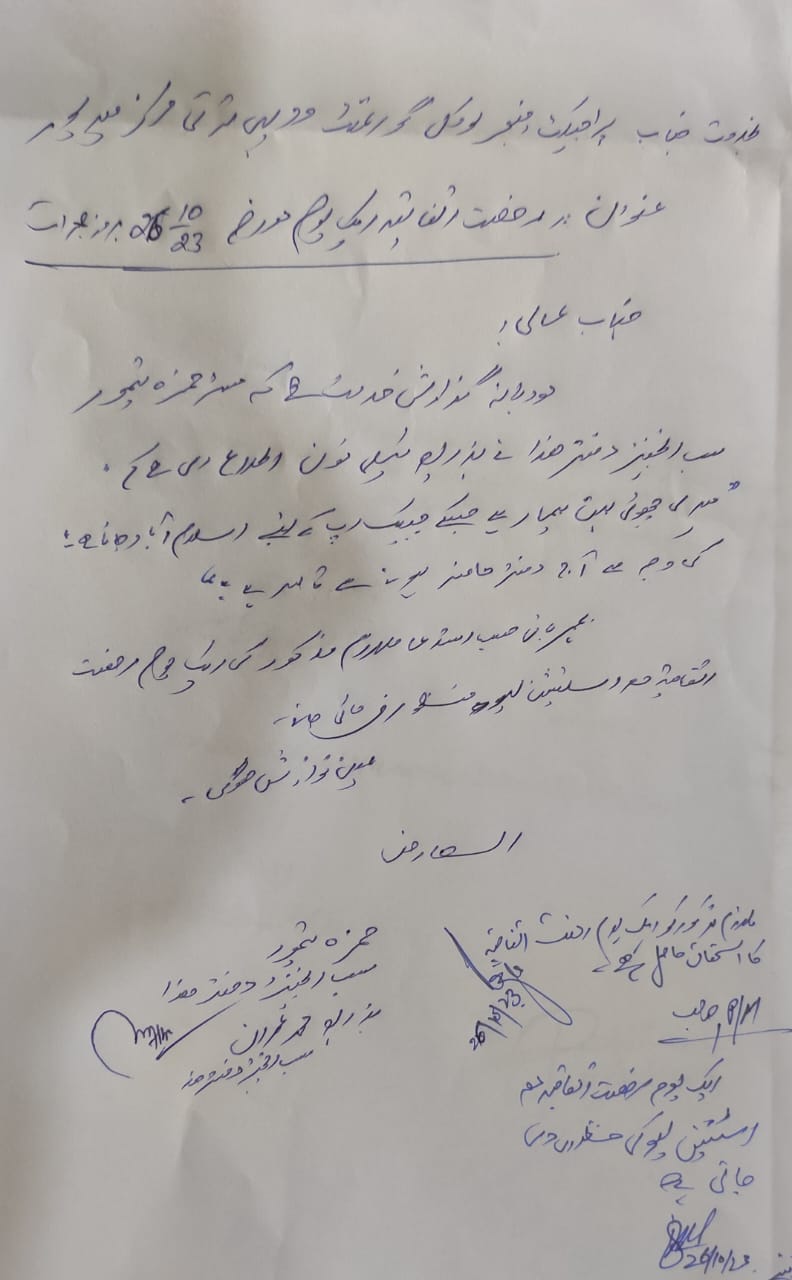 بخدمت جناب پراجیکٹ منیجر لوکل گورنمنٹ و دیہی ترقی مرکز میرپور
عنوان :۔ رخصت اتفاقیہ ایک یوم مورخہ 26/10/23 بروز جمعرات
جناب عالی!
مودبانہ گذارش خدمت ہے کہ مسٹر حمزہ تیمور
سب انجینئر دفتر ھذا نے بذریعہ ٹیلی فون اطلاع دی ہے کہ
"میری چھوٹی بہن بیمار ہے جسکے چیک اپ کے لیئے اسلام آباد جانا ہے
کی وجہ سے آج دفتر حاضر ہونے سے قاصر ہے۔"
بمہربانی حسب استدعا ملازم مذکور کی ایک یوم رخصت
اتفاقیہ معہ اسٹیشن لیو منظور فرمائی جائے۔
عین نوازش ہوگی۔
العارض
حمزہ تیمور
سب انجینئر دفتر ھذا
بذریعہ محمد عمران
سب انجینئر دفتر ھذا
ملازم مذکور کو ایک یوم رخصت اتفاقیہ
کا استحقاق حاصل ہے
26/10/23
P/M صاحب
ایک یوم رخصت اتفاقیہ معہ
اسٹیشن لیو کی منظوری دی
جاتی ہے
26/10/23